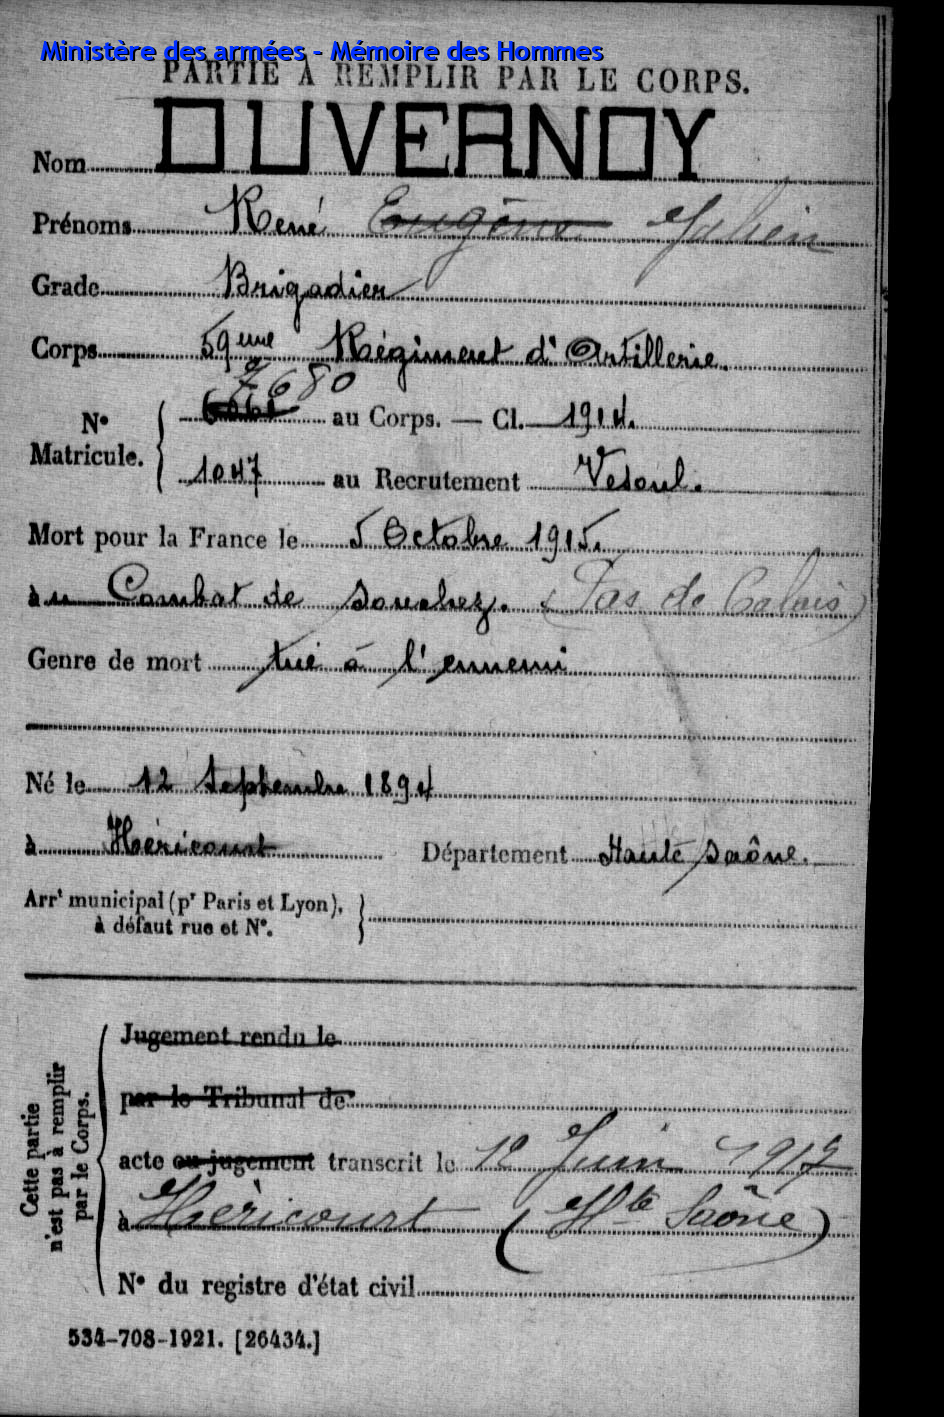 Ministère des armées - Mémoire des Hommes
PARTIE À REMPLIR PAR LE CORPS.
Nom DUVERNOY
Prénoms René Eugène Julien
Grade Brigadier
Corps 59eme Régiment d'Artillerie.
7680
N° Matricule. 6061 au Corps. — Cl. 1914.
1047 au Recrutement Vesoul.
Mort pour la France le 5 Octobre 1915.
à u Combat de Souchez. (Pas de Calais)
Genre de mort tué à l'ennemi
Né le 12 Septembre 1894
à Héricourt Département Haute Saône.
Arrt municipal (pr Paris et Lyon),
à défaut rue et N°.
Cette partie n'est pas à remplir par le Corps.
Jugement rendu le
par le Tribunal de
acte ou jugement transcrit le 12 Juin 1917
à Héricourt (Hte Saône)
N° du registre d'état civil
534-708-1921. [26434.]